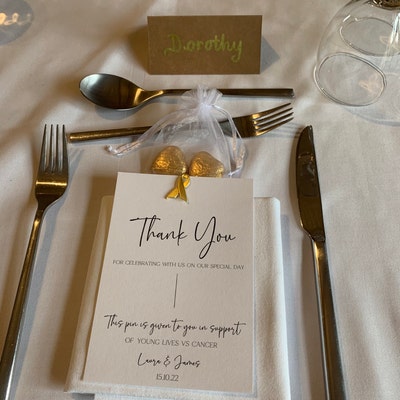 Dorothy
Thank You
FOR CELEBRATING WITH US ON OUR SPECIAL DAY
This pin is given to you in support
OF YOUNG LIVES VS CANCER
Laura & James
15.10.22